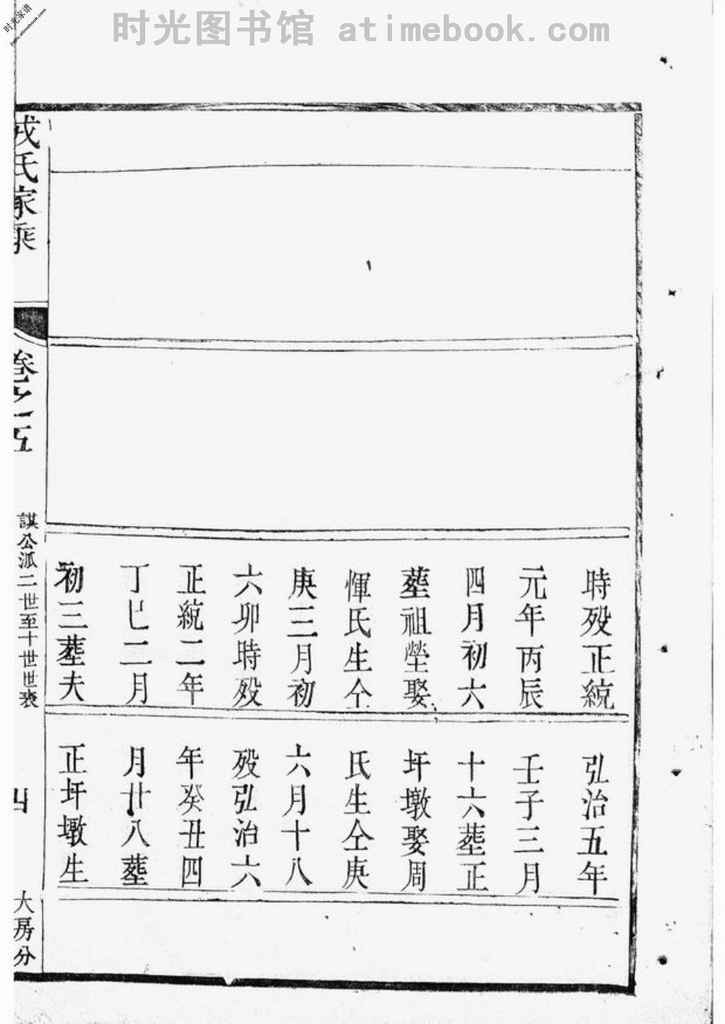 时光图书馆 atimebook.com
时光家谱
時歿正統
元年丙辰
四月初六
塟祖塋娶
惲氏生仝
庚三月初
六卯時歿
正統二年
丁巳二月
初三塟夫
弘治五年
壬子三月
十六塟正
圩墩娶周
氏生仝庚
六月十八
歿弘治六
年癸丑四
月廿八塟
正圩墩生
氏家乘
卷之五
謀公派二世至十世世表
四
大房分